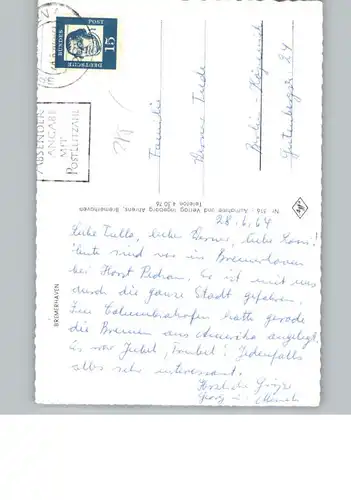 DEUTSCHE BUNDESPOST
15
ABSENDER
ANGABE
MIT
POSTLEITZAHL
Familie
Werner
Berlin-
24
Nr. 516 : Aufnahme und Verlag Ingeborg Ahrens, Bremerhaven
Telefon
BREMERHAVEN
28.6.64
Liebe liebe liebe
heute sind wir in Bremerhaven
bei Horst Er ist mit uns
durch die ganze Stadt gefahren.
Im Columbushafen hatte gerade
die Bremen aus Amerika angelegt.
Es war Jubel, Trubel! Jedenfalls
alles sehr interessant.
Herzliche Grüße
Georg u.